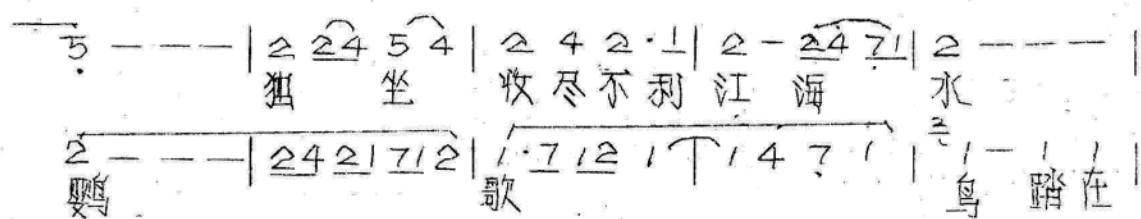 5 - - - - | 2 24 5 4 | 2 4 2 · 1 | 2 - 24 71 | 2 - - - - |
独 坐 收 尽 不 利 江 海 水
2 - - - | 24 21 71 2 | 1 · 7 12 1 | 1 4 7 1 | 2 1 - 1 1 |
鹦 歌 鸟 踏 在